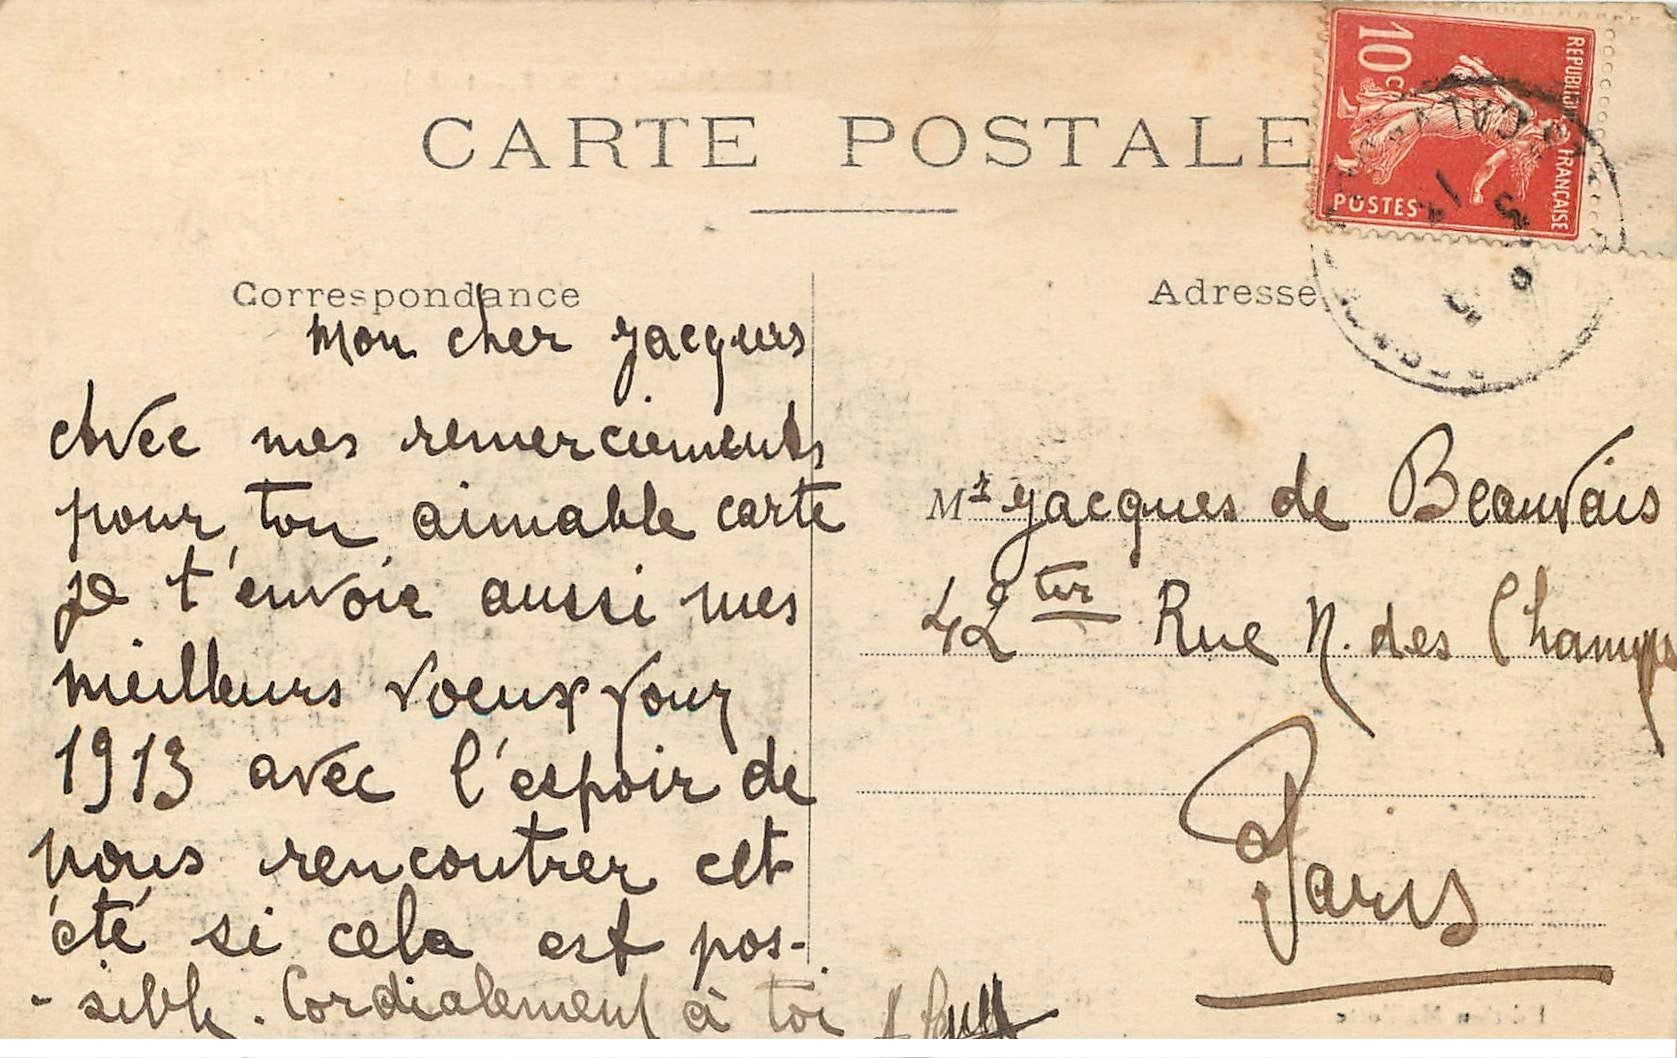 CARTE POSTALE
10c
REPUBLIQUE FRANÇAISE
POSTES
CAL
Correspondance
Adresse
Mon cher Jacques
Avec mes remerciements
pour ton aimable carte
je t'envoie aussi mes
meilleurs voeux pour
1913 avec l'espoir de
nous rencontrer cet
été si cela est pos-
-sible. Cordialement à toi
Mr Jacques de Beauvais
42 ter Rue N. des Champs
Paris